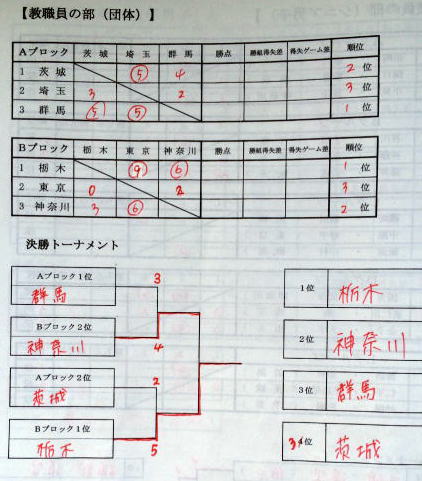 【教職員の部（団体）】
Aブロック 茨城 埼玉 群馬 勝点 勝組得失差 得失ゲーム差 順位
1 茨城 5 4 2位
2 埼玉 3 2 3位
3 群馬 5 5 1位
Bブロック 栃木 東京 神奈川 勝点 勝組得失差 得失ゲーム差 順位
1 栃木 9 6 1位
2 東京 0 2 3位
3 神奈川 3 6 2位
決勝トーナメント
Aブロック1位 3
群馬
Bブロック2位
神奈川 4
Aブロック2位 2
茨城
Bブロック1位
栃木 5
1位 栃木
2位 神奈川
3位 群馬
3位 茨城